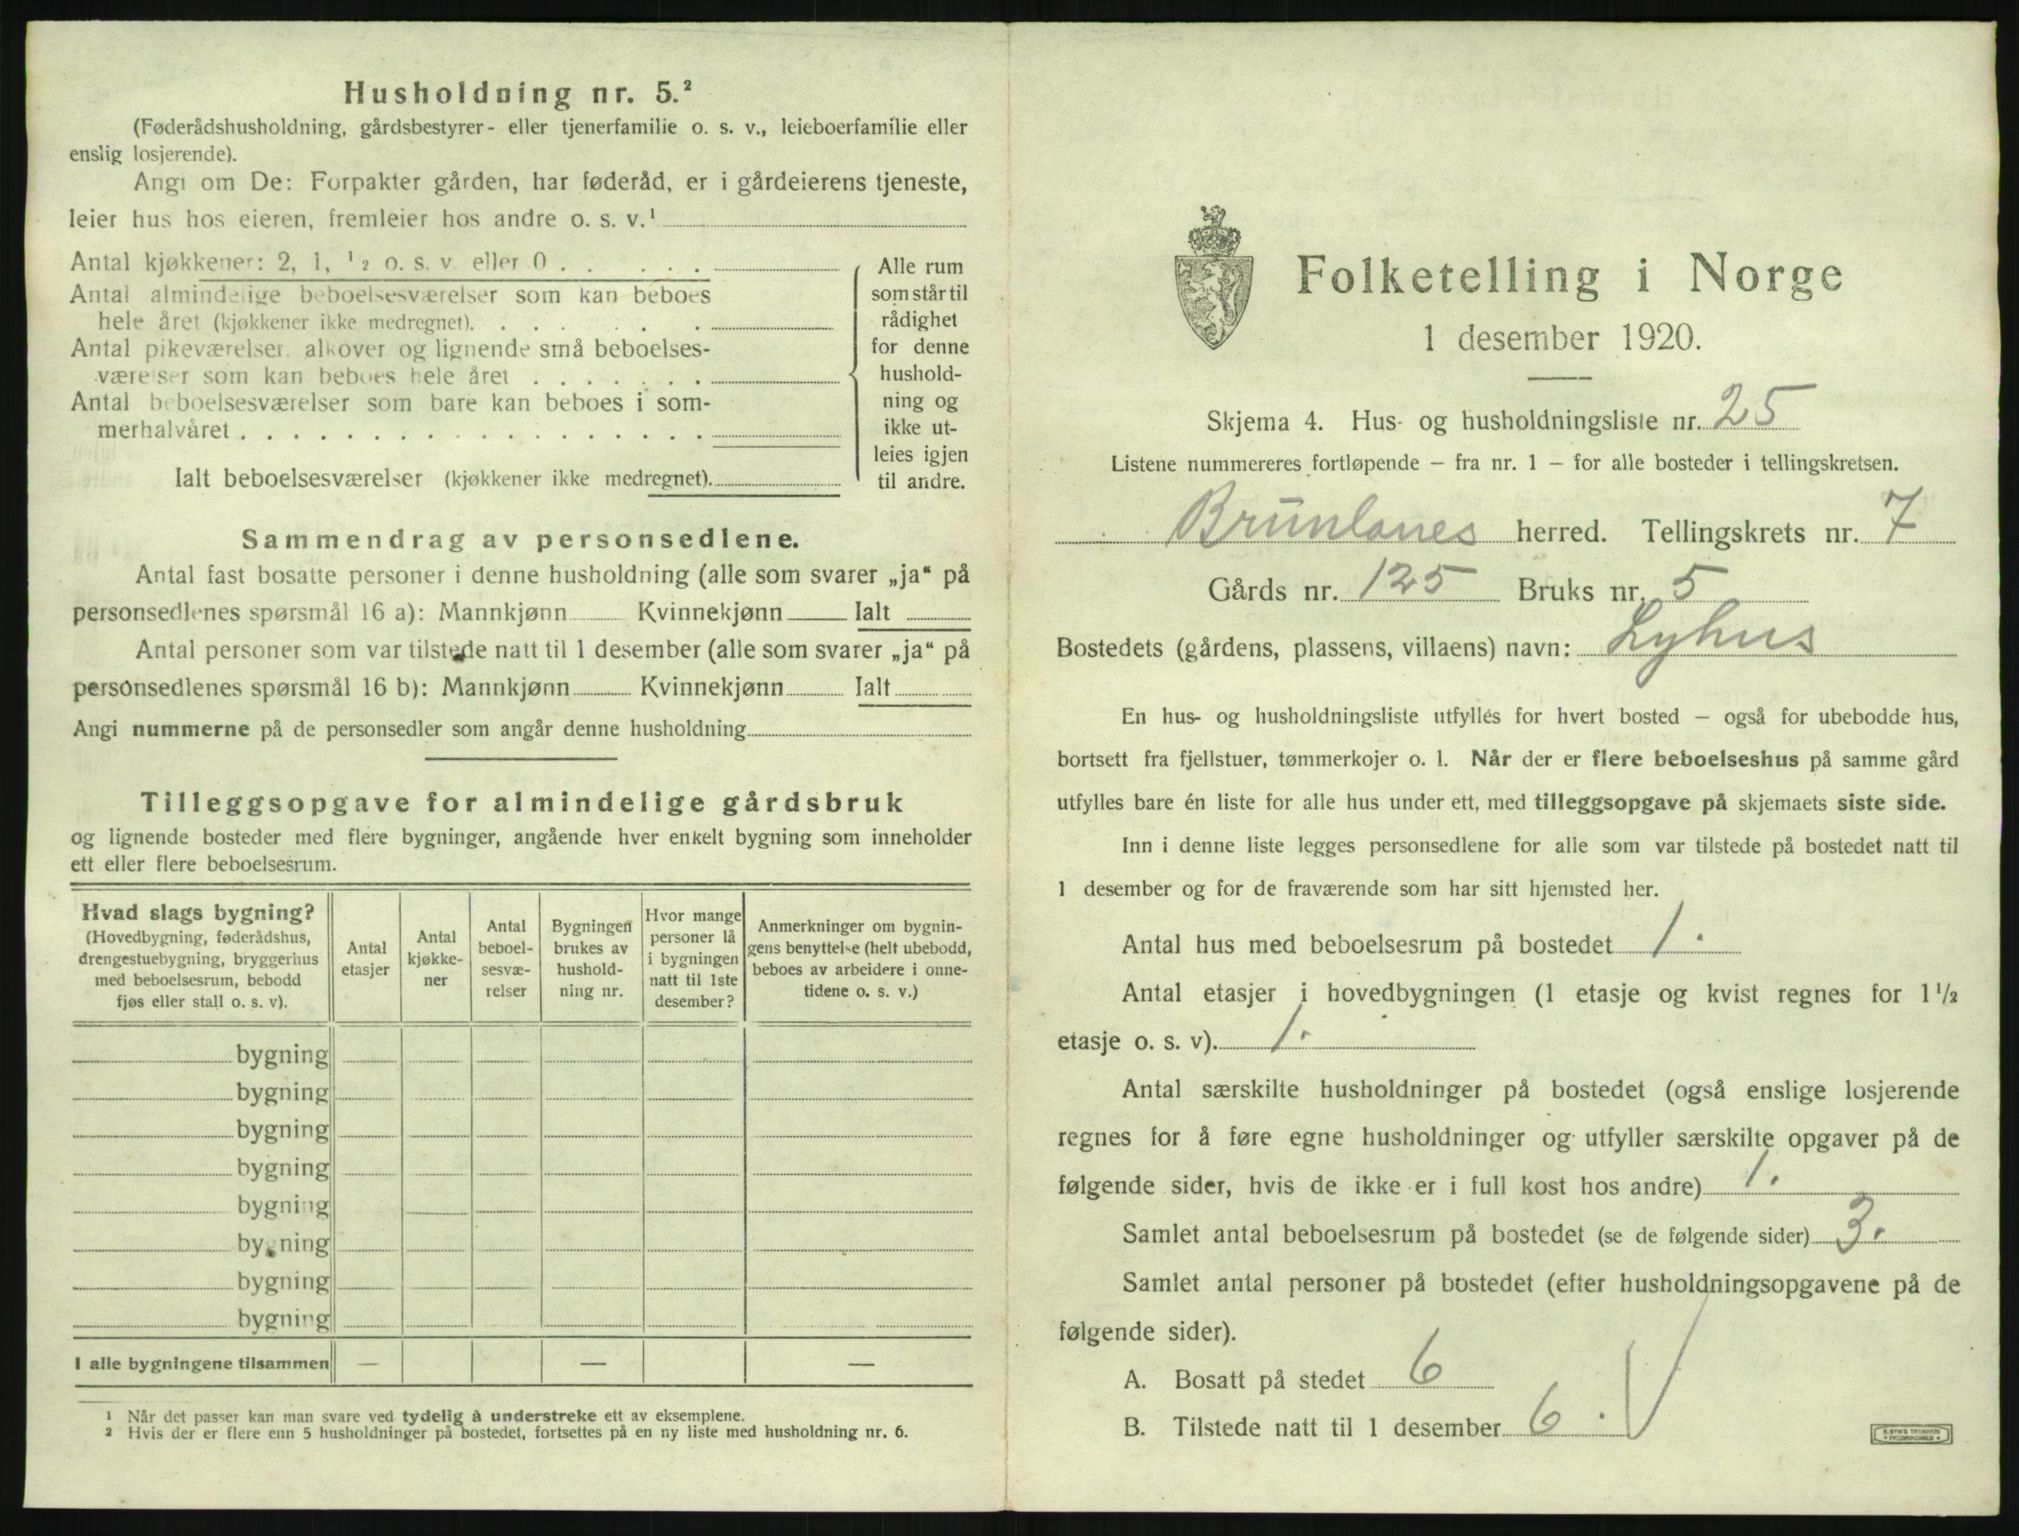 Husholdning nr. 5.²
(Føderådshusholdning, gårdsbestyrer- eller tjenerfamilie o. s. v., leieboerfamilie eller
enslig losjerende).
Angi om De: Forpakter gården, har føderåd, er i gårdeierens tjeneste,
leier hus hos eieren, fremleier hos andre o. s. v.¹
Antal kjøkkener: 2, 1, ¹/₂ o. s. v eller 0 . . . . . .
Antal almindelige beboelsesværelser som kan beboes
hele året (kjøkkener ikke medregnet). . . . . . .
Antal pikeværelser, alkover og lignende små beboelses-
værelser som kan beboes hele året . . . . . . .
Antal beboelsesværelser som bare kan beboes i som-
merhalvåret . . . . . . . . . . . . . . . . . .
Ialt beboelsesværelser (kjøkkener ikke medregnet).
Alle rum
som står til
rådighet
for denne
hushold-
ning og
ikke ut-
leies igjen
til andre.
Sammendrag av personsedlene.
Antal fast bosatte personer i denne husholdning (alle som svarer „ja“ på
personsedlenes spørsmål 16 a): Mannkjønn Kvinnekjønn Ialt
Antal personer som var tilstede natt til 1 desember (alle som svarer „ja“ på
personsedlenes spørsmål 16 b): Mannkjønn Kvinnekjønn Ialt
Angi nummerne på de personsedler som angår denne husholdning
Tilleggsopgave for almindelige gårdsbruk
og lignende bosteder med flere bygninger, angående hver enkelt bygning som inneholder
ett eller flere beboelsesrum.
Hvad slags bygning?
(Hovedbygning, føderådshus,
drengestuebygning, bryggerhus
med beboelsesrum, bebodd
fjøs eller stall o. s. v).
Antal
etasjer
Antal
kjøkke-
ner
Antal
beboel-
sesvæ-
relser
Bygningen
brukes av
hushold-
ning nr.
Hvor mange
personer lå
i bygningen
natt til 1ste
desember?
Anmerkninger om bygnin-
gens benyttelse (helt ubebodd,
beboes av arbeidere i onne-
tidene o. s. v.)
bygning
bygning
bygning
bygning
bygning
bygning
bygning
bygning
I alle bygningene tilsammen — — —
¹ Når det passer kan man svare ved tydelig å understreke ett av eksemplene.
² Hvis der er flere enn 5 husholdninger på bostedet, fortsettes på en ny liste med husholdning nr. 6.
Folketelling i Norge
1 desember 1920.
Skjema 4. Hus- og husholdningsliste nr. 25
Listene nummereres fortløpende – fra nr. 1 – for alle bosteder i tellingskretsen.
Brunlanes herred. Tellingskrets nr. 7
Gårds nr. 125 Bruks nr. 5
Bostedets (gårdens, plassens, villaens) navn: Lyhus
En hus- og husholdningsliste utfylles for hvert bosted – også for ubebodde hus,
bortsett fra fjellstuer, tømmerkojer o. l. Når der er flere beboelseshus på samme gård
utfylles bare én liste for alle hus under ett, med tilleggsopgave på skjemaets siste side.
Inn i denne liste legges personsedlene for alle som var tilstede på bostedet natt til
1 desember og for de fraværende som har sitt hjemsted her.
Antal hus med beboelsesrum på bostedet 1.
Antal etasjer i hovedbygningen (1 etasje og kvist regnes for 1¹/₂
etasje o. s. v). 1.
Antal særskilte husholdninger på bostedet (også enslige losjerende
regnes for å føre egne husholdninger og utfyller særskilte opgaver på de
følgende sider, hvis de ikke er i full kost hos andre) 1.
Samlet antal beboelsesrum på bostedet (se de følgende sider) 3.
Samlet antal personer på bostedet (efter husholdningsopgavene på de
følgende sider).
A. Bosatt på stedet 6
B. Tilstede natt til 1 desember 6.